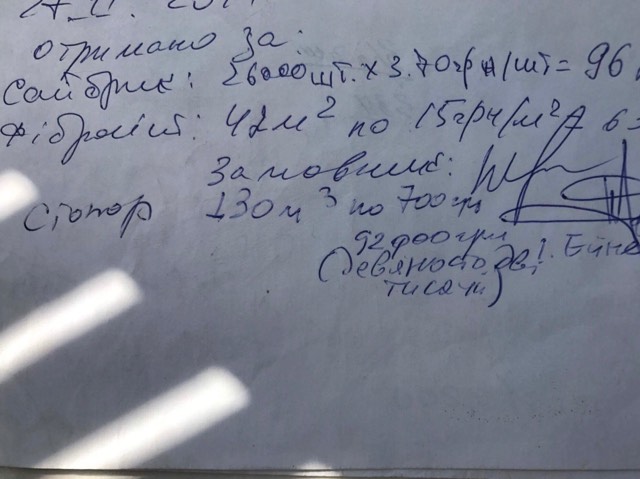 отримано за:
Сайбрик: 26000шт. х 3.70грн/шт = 96
Фіброліт: 42м² по 15грн/м²
Замовник:
Стопор 130м³ по 700грн
92000грн
(Девяносто дві
тисячі)